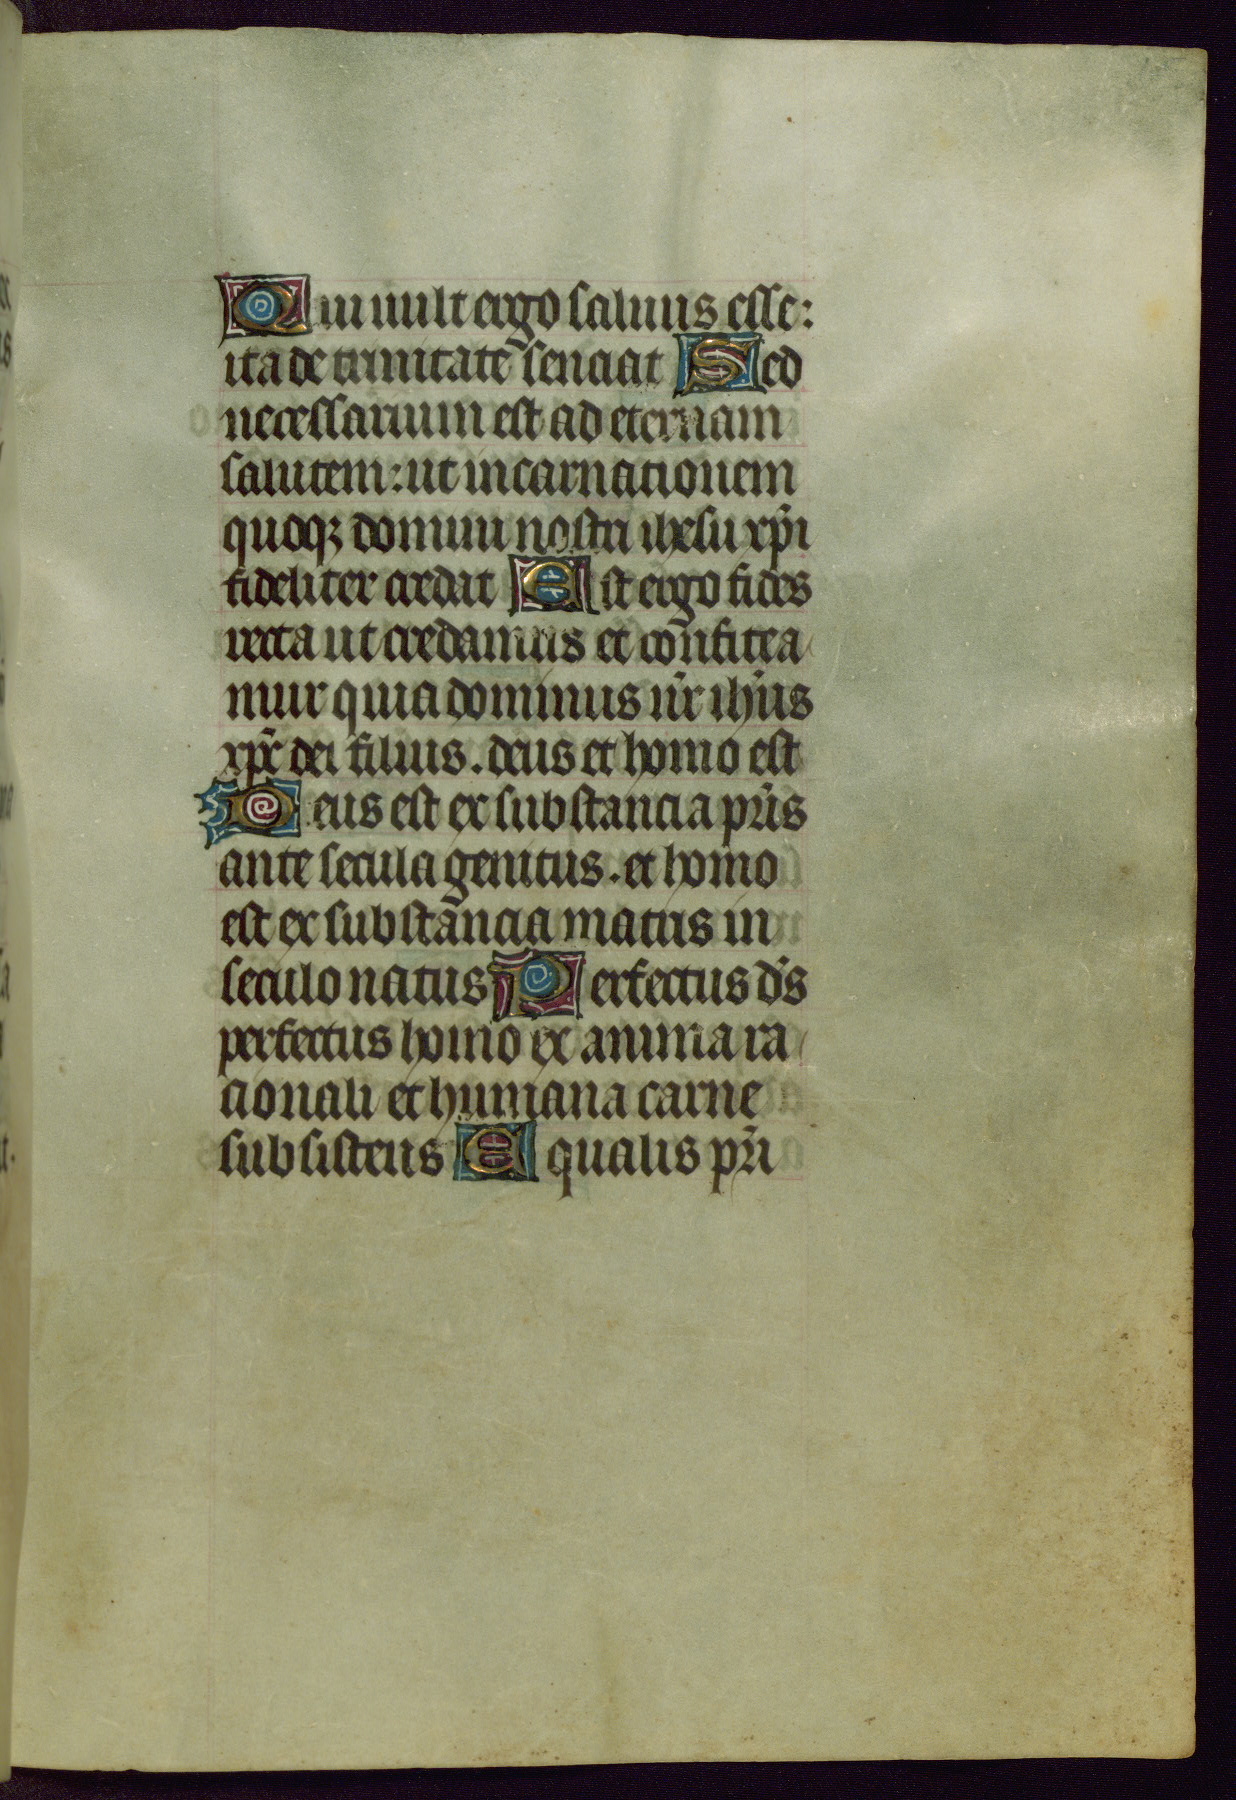 Qui uult ergo saluus esse:
ita de trinitate senciat Sed
necessarium est ad eternam
salutem: ut incarnationem
quoqȝ domini nostri ihesu xp̄i
fideliter credat Est ergo fides
recta ut credamus et confitea
mur quia dominus nr̄ ihūs
xp̄c dei filius. deus et homo est
Deus est ex substancia pr̄is
ante secula genitus. et homo
est ex substancia matris in
seculo natus Perfectus d̄s
perfectus homo ex anima ra
cionali et humana carne
subsistens Equalis pr̄i